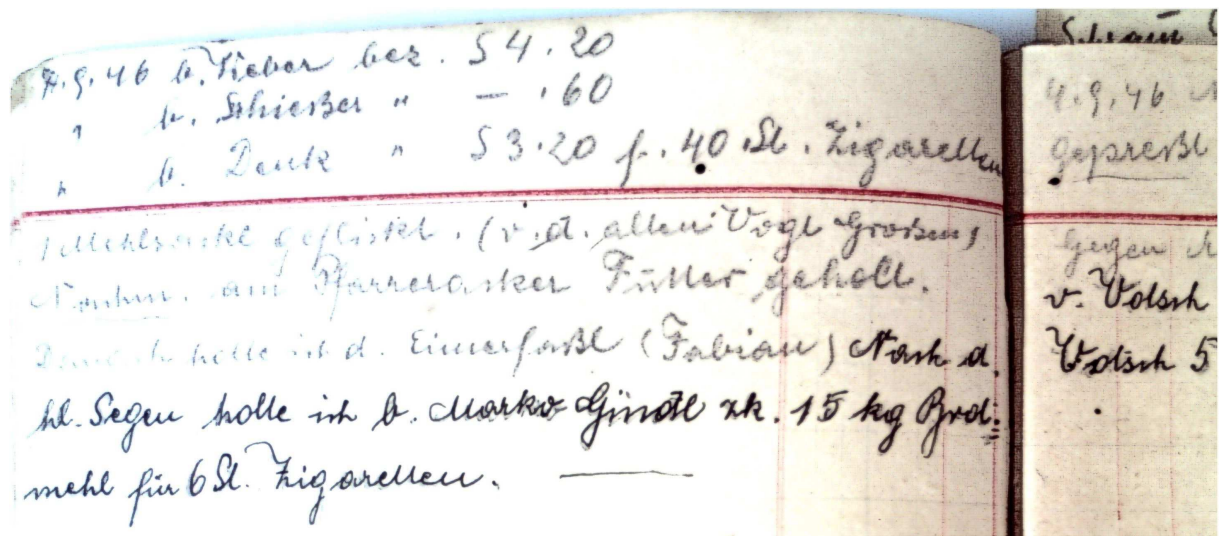 7.9.46 b. Sieber bez. S 4.20
" b. Schießer " — .60
" b. Denk " S 3.20 f. 40 St. Zigaretten
1 Mehlsackl geflickt. (v. d. alten Vogl Großm)
Nachm. am Pfarreracker Futter geholt.
holte ich d. Eimerfaßl (Fabian) Nach d.
hl. Segen holte ich b. Marko Gindl zk. 15 kg Brd:
mehl für 6 St. Zigaretten.
4.9.46
gepreßt
Gegen
v. Votsch
Votsch 5